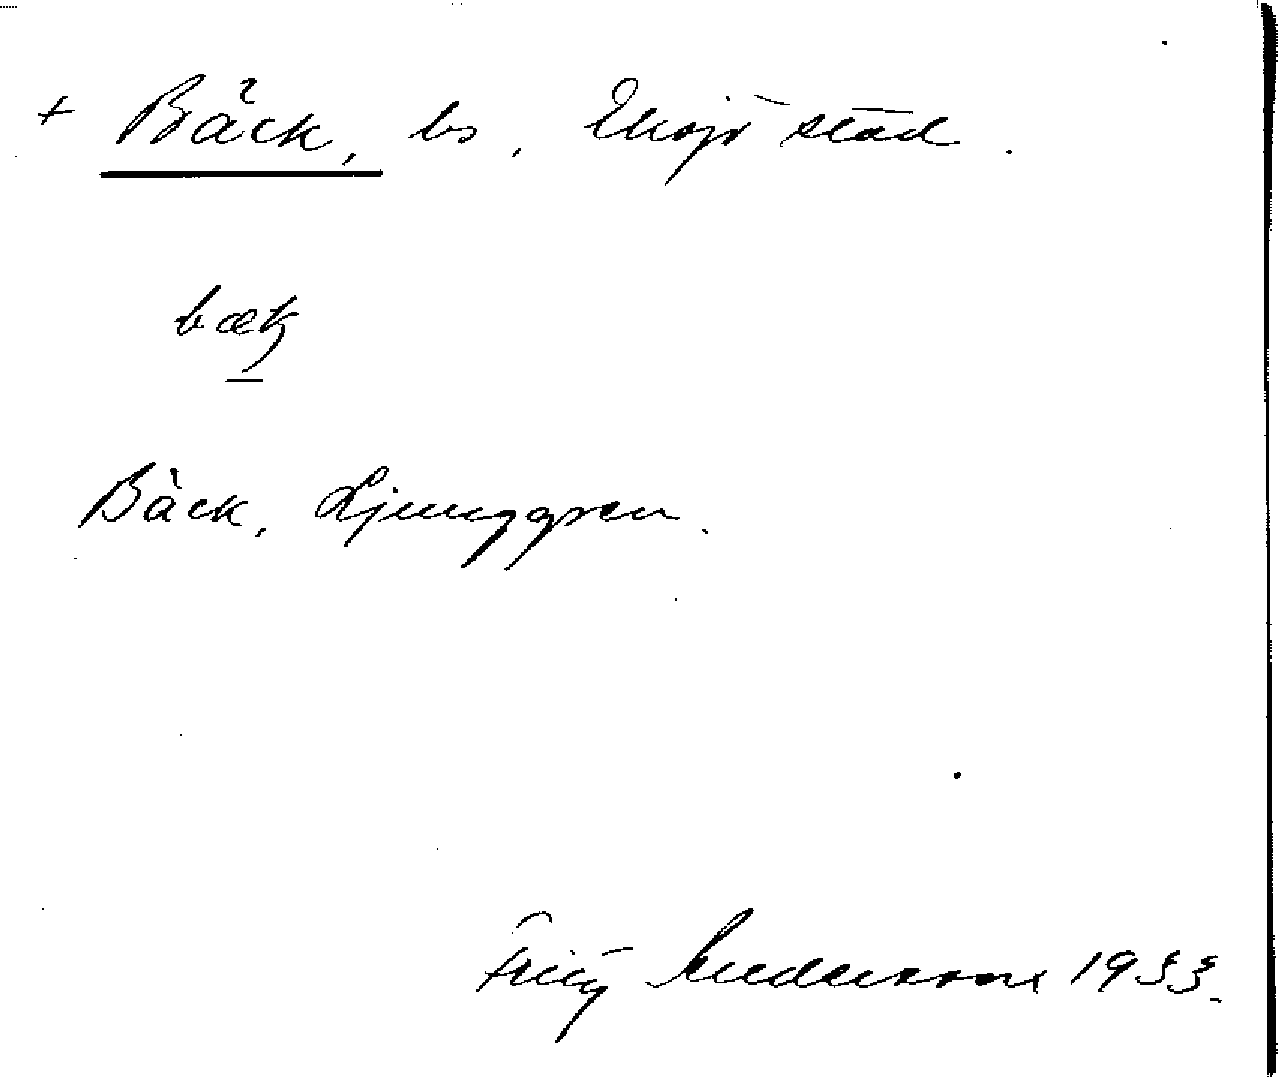 + Bäck, bs, Eksjö stad.
bæk
Bäck, Ljunggren.
Fritz Andersson 1933.